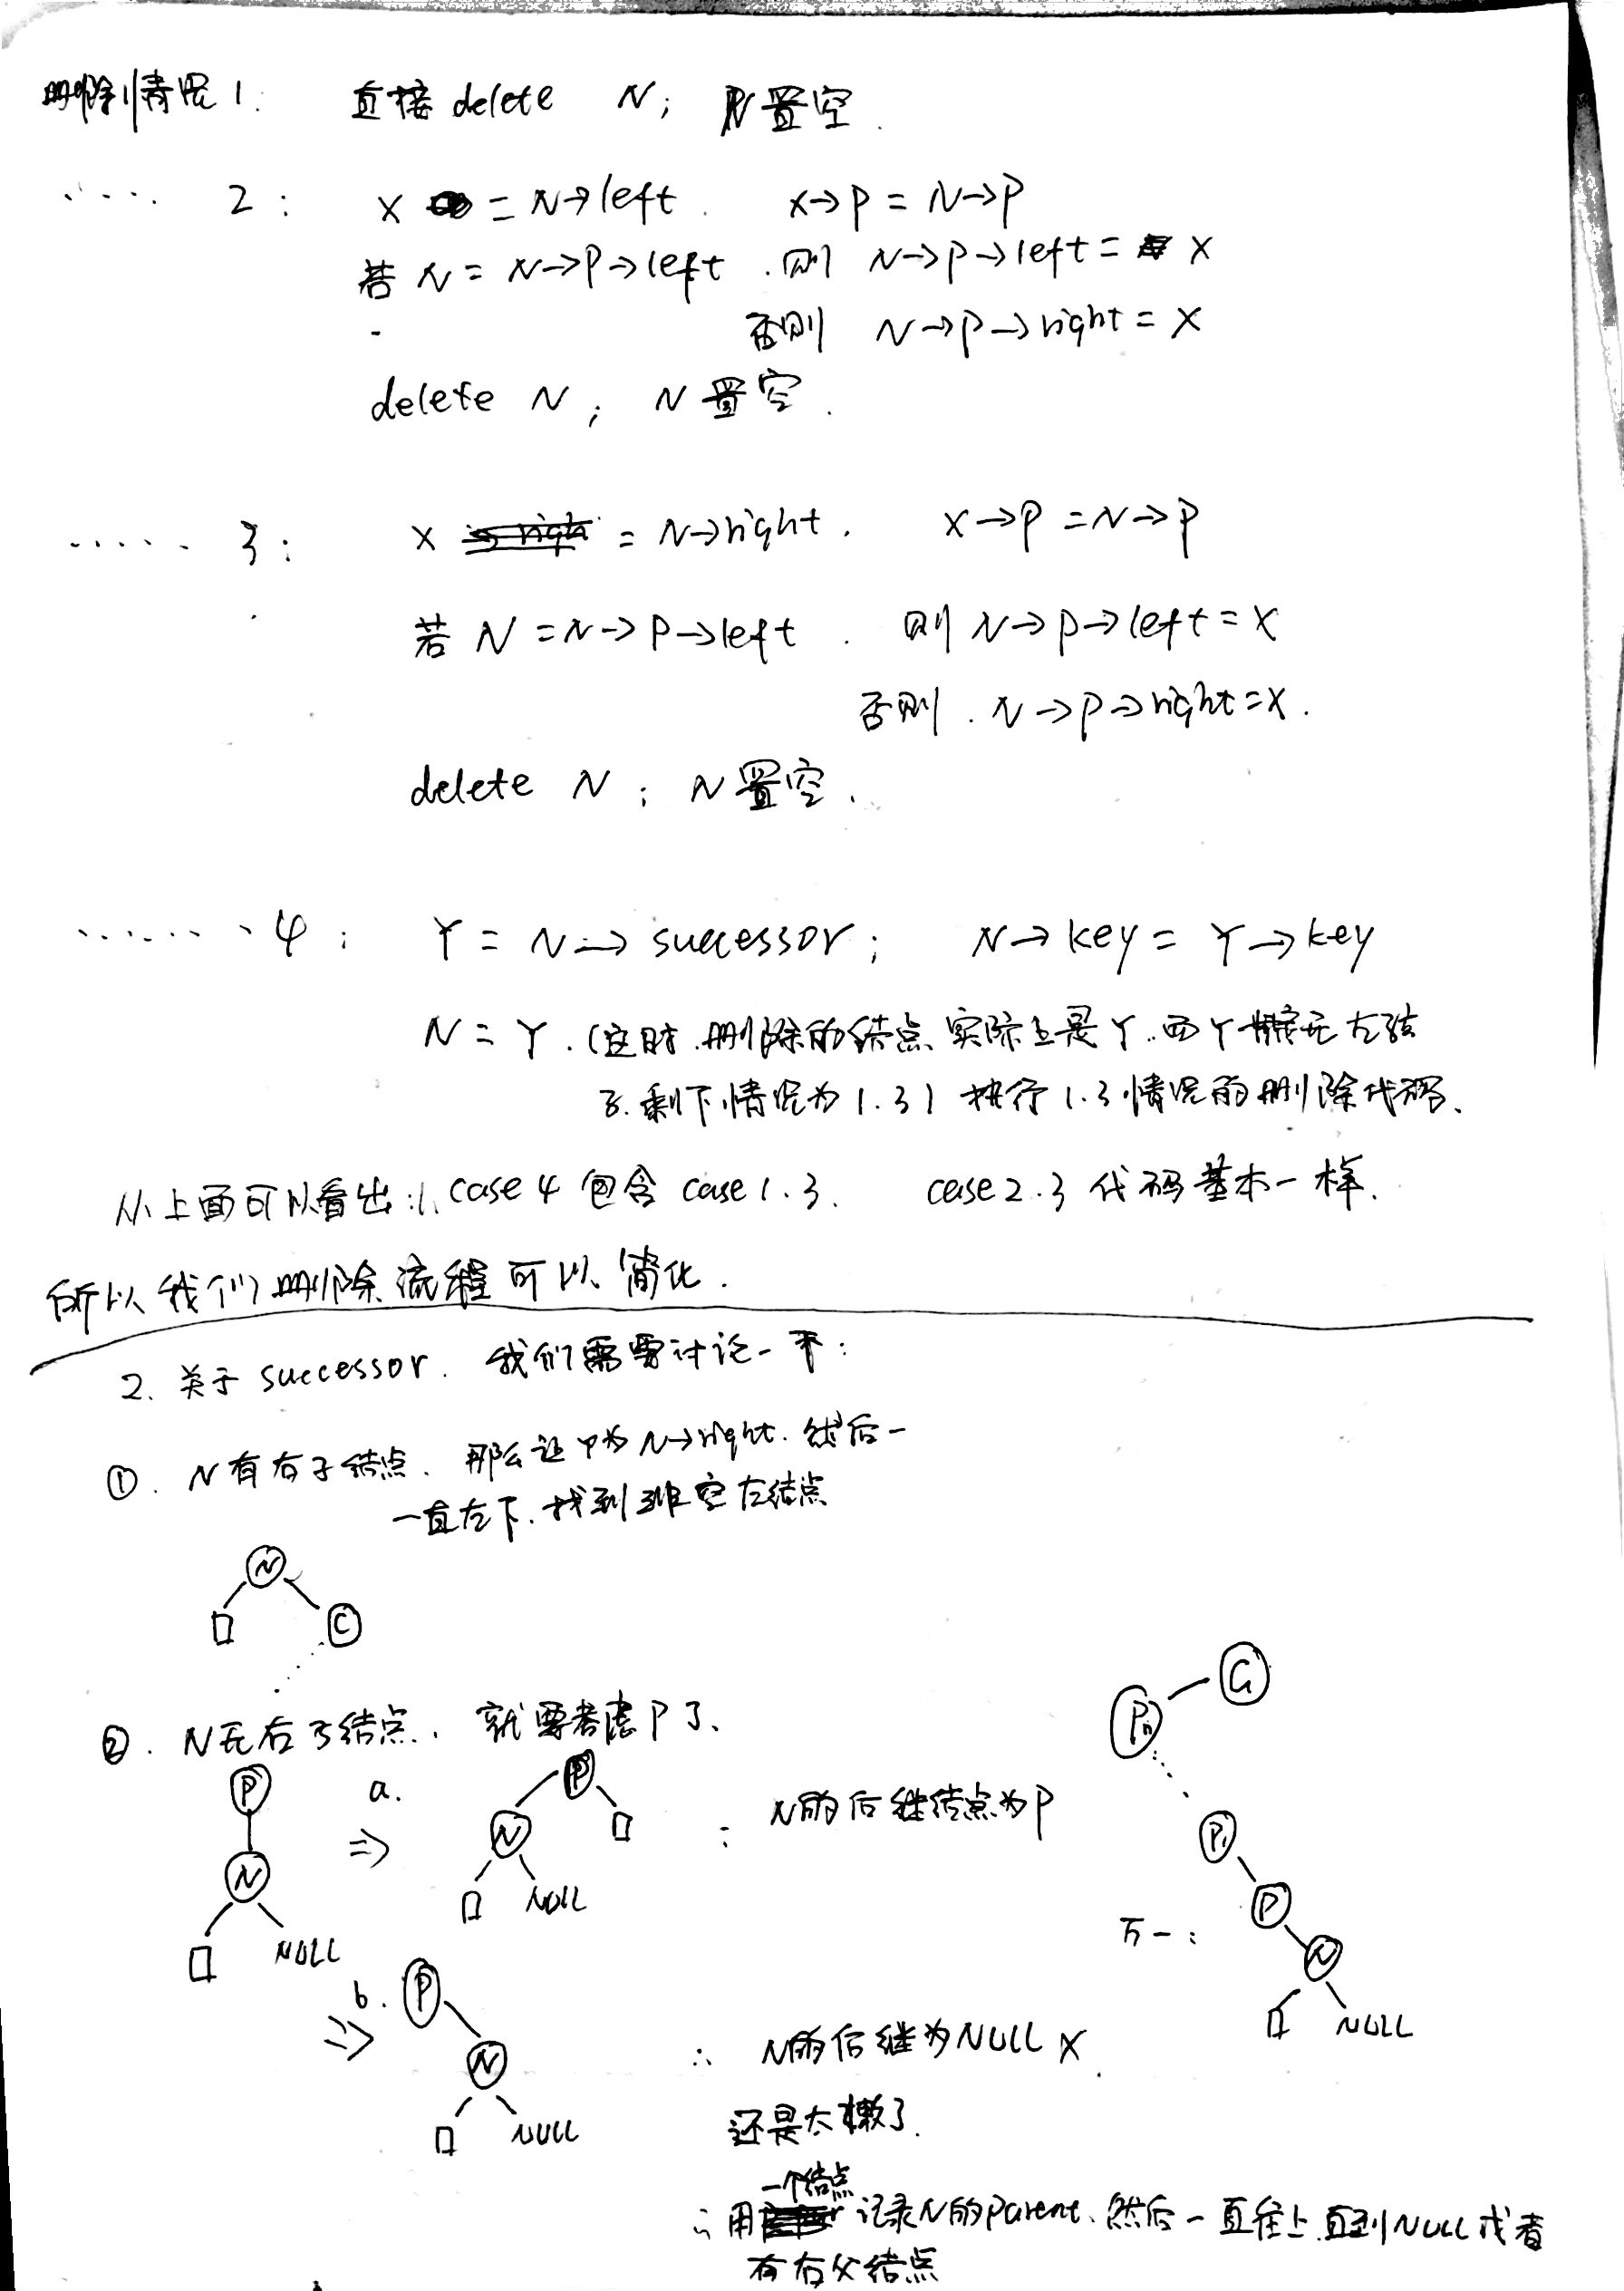 删除情况1. 直接delete N; N置空.
..... 2: X = N→left. X→P = N→P
若 N = N→P→left. 则 N→P→left = X
否则 N→P→right = X
delete N; N置空.
..... 3: X = N→right. X→P = N→P
若 N = N→P→left. 则 N→P→left = X
否则. N→P→right = X.
delete N; N置空.
....... 4: Y = N→successor; N→key = Y→key
N = Y. (这时.删除的结点实际上是Y.而Y 无左孩
子.剩下情况为1.3) 执行1.3情况的删除代码.
从上面可以看出:1. case 4 包含 case 1.3. case 2.3 代码基本一样.
所以我们删除流程可以简化.
2. 关于 successor. 我们需要讨论一下:
①. N有右子结点. 那么让Y为N→right. 然后一
一直左下.找到非空左结点
N
C
②. N无右子结点. 就要考虑P了.
P
N
NULL
a.
⇒
P
N
NULL
: N的后继结点为P
b.
⇒
P
N
NULL
∴ N的后继为NULL X.
还是太嫩了.
万一:
G
Pn
P1
P
N
NULL
∴用一个结点记录N的parent.然后一直往上.直到NULL或者
有右父结点